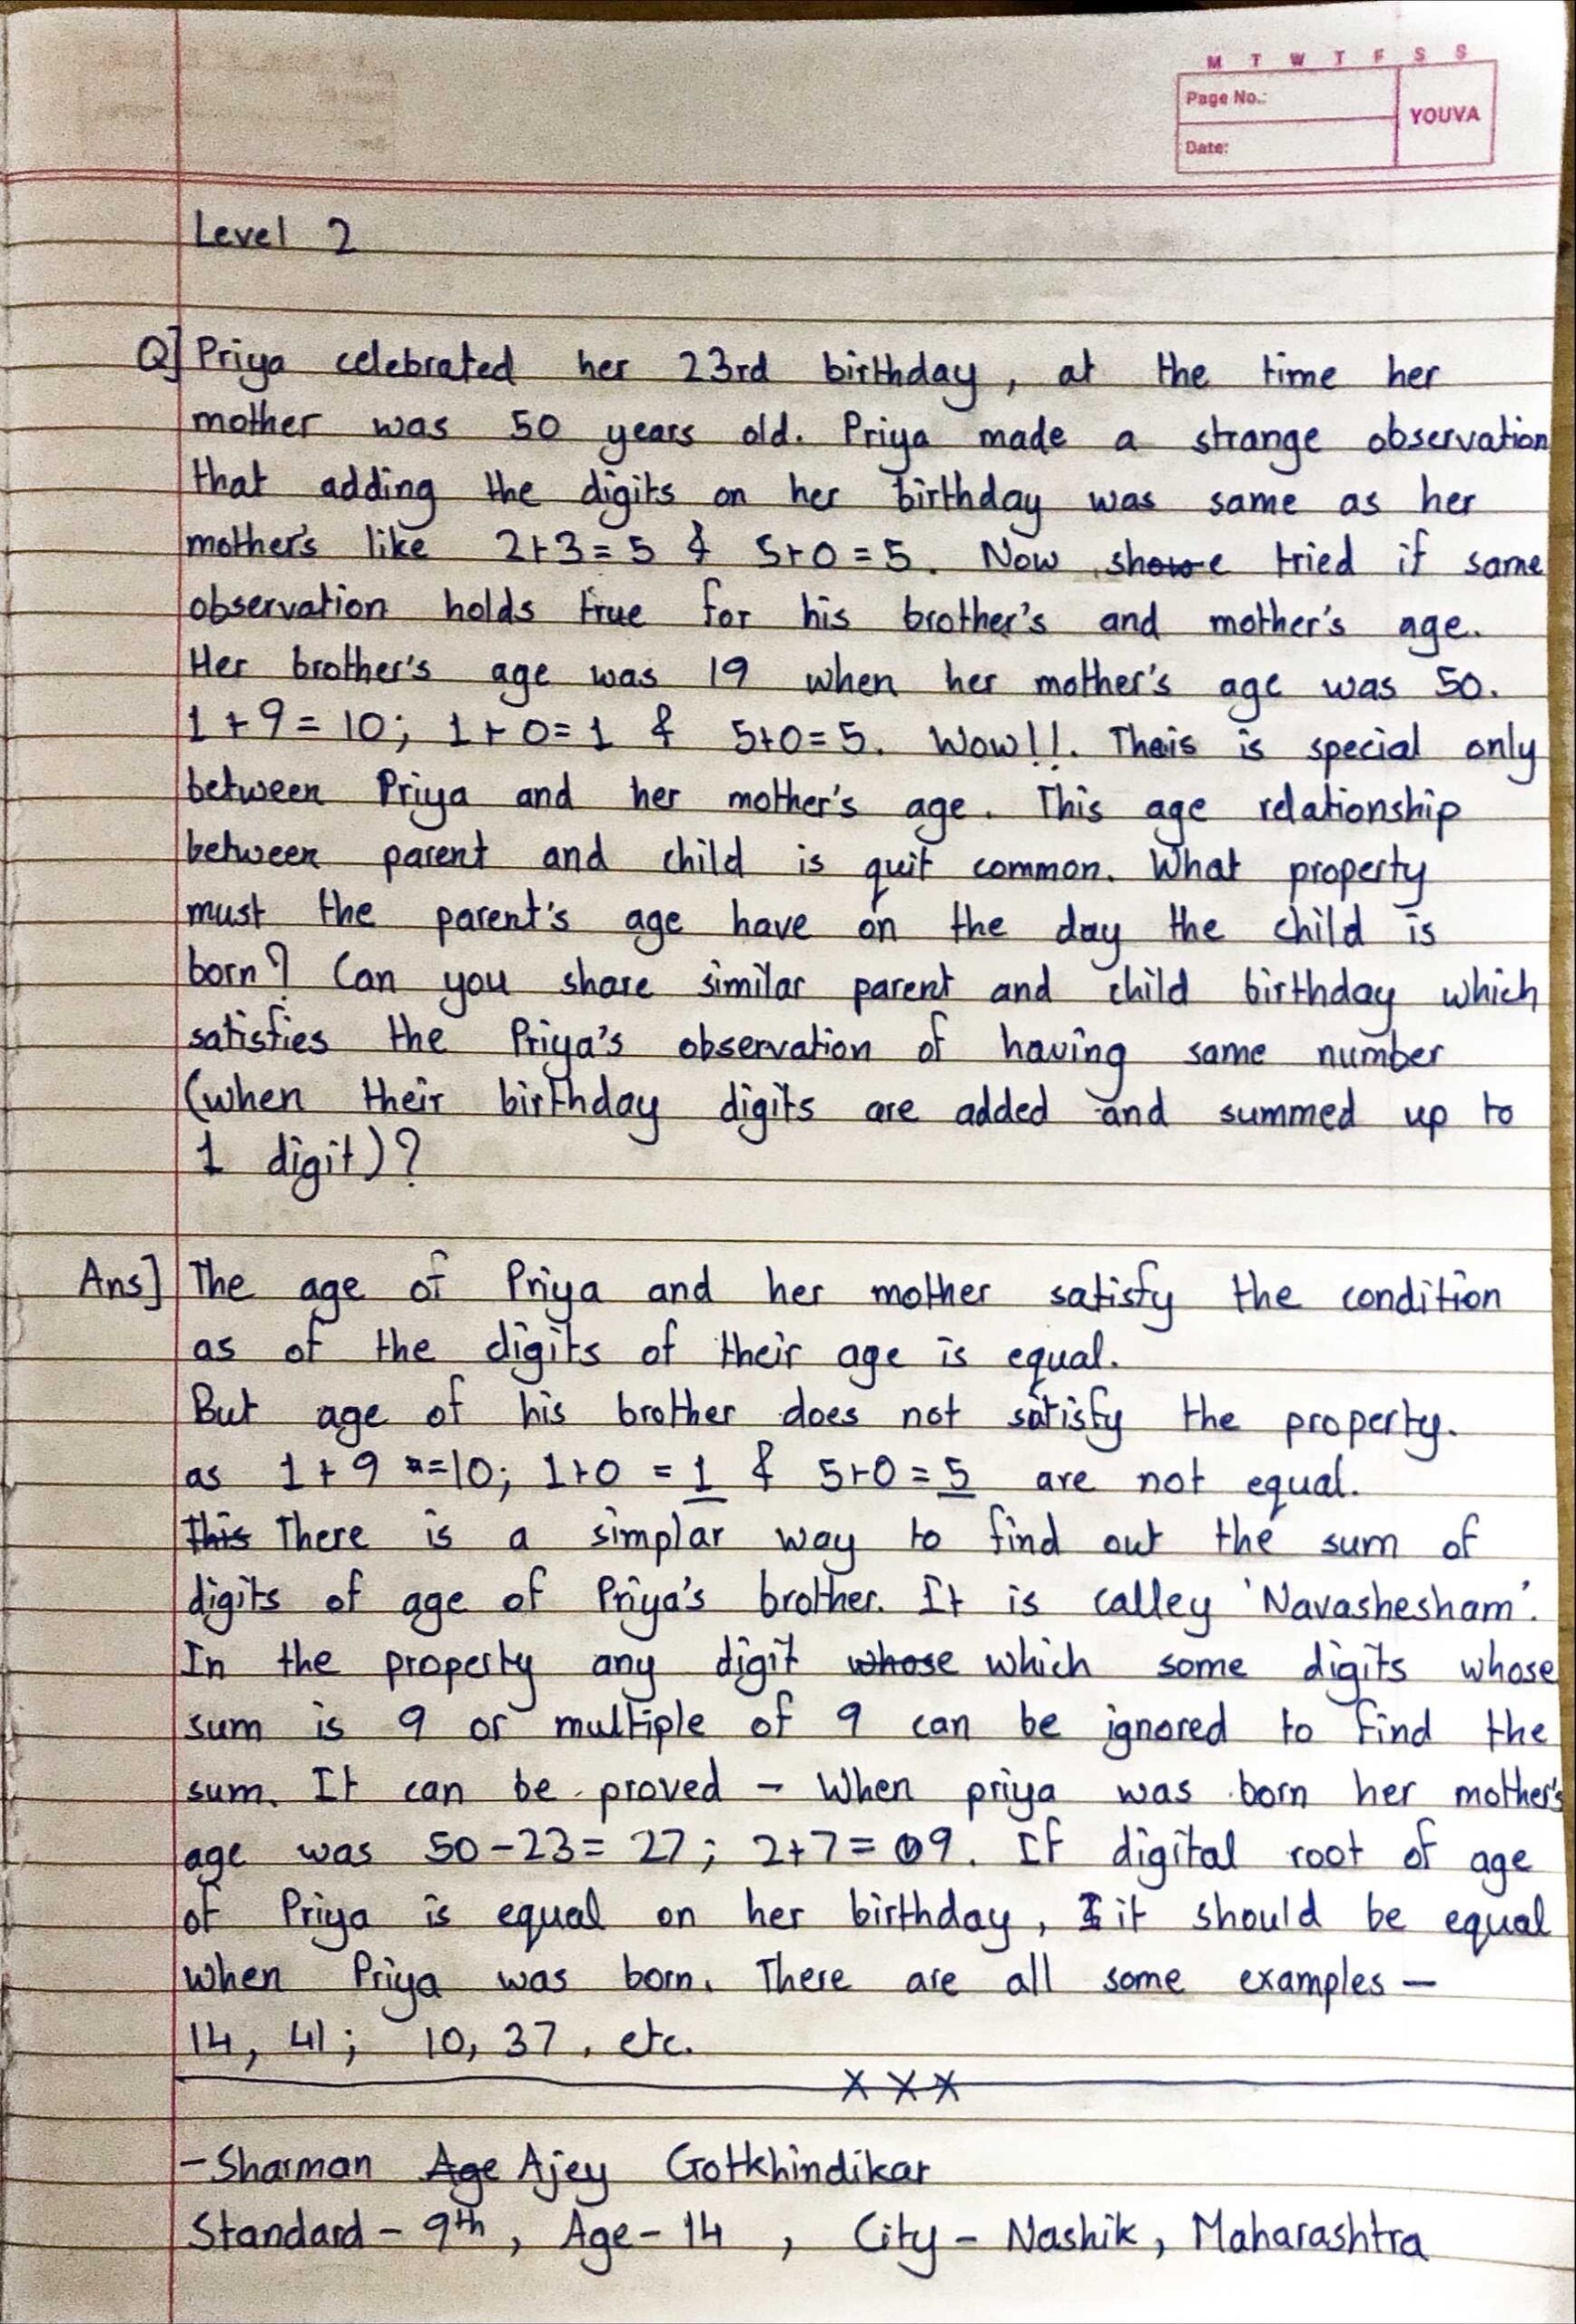 M T W T F S S
Page No.:
YOUVA
Date:
Level 2
Q] Priya celebrated her 23rd birthday, at the time her
mother was 50 years old. Priya made a strange observation
that adding the digits on her birthday was same as her
mother's like 2+3=5 & 5+0=5. Now she tried if same
observation holds true for his brother's and mother's age.
Her brother's age was 19 when her mother's age was 50.
1+9=10; 1+0=1 & 5+0=5. Wow!!. This is special only
between Priya and her mother's age. This age relationship
between parent and child is quit common. What property
must the parent's age have on the day the child is
born? Can you share similar parent and child birthday which
satisfies the Priya's observation of having same number
(when their birthday digits are added and summed up to
1 digit)?
Ans] The age of Priya and her mother satisfy the condition
as of the digits of their age is equal.
But age of his brother does not satisfy the property.
as 1+9 =10; 1+0 = 1 & 5+0=5 are not equal.
This There is a simplar way to find out the sum of
digits of age of Priya's brother. It is calley 'Navashesham'.
In the property any digit whose which some digits whose
sum is 9 or multiple of 9 can be ignored to find the
sum. It can be proved - When priya was born her mother's
age was 50-23= 27; 2+7= 9. If digital root of age
of Priya is equal on her birthday, it should be equal
when Priya was born. There are all some examples -
14, 41; 10, 37, etc.
x x x
- Sharman Age Ajey Gotkhindikar
Standard - 9th, Age - 14 , City - Nashik, Maharashtra